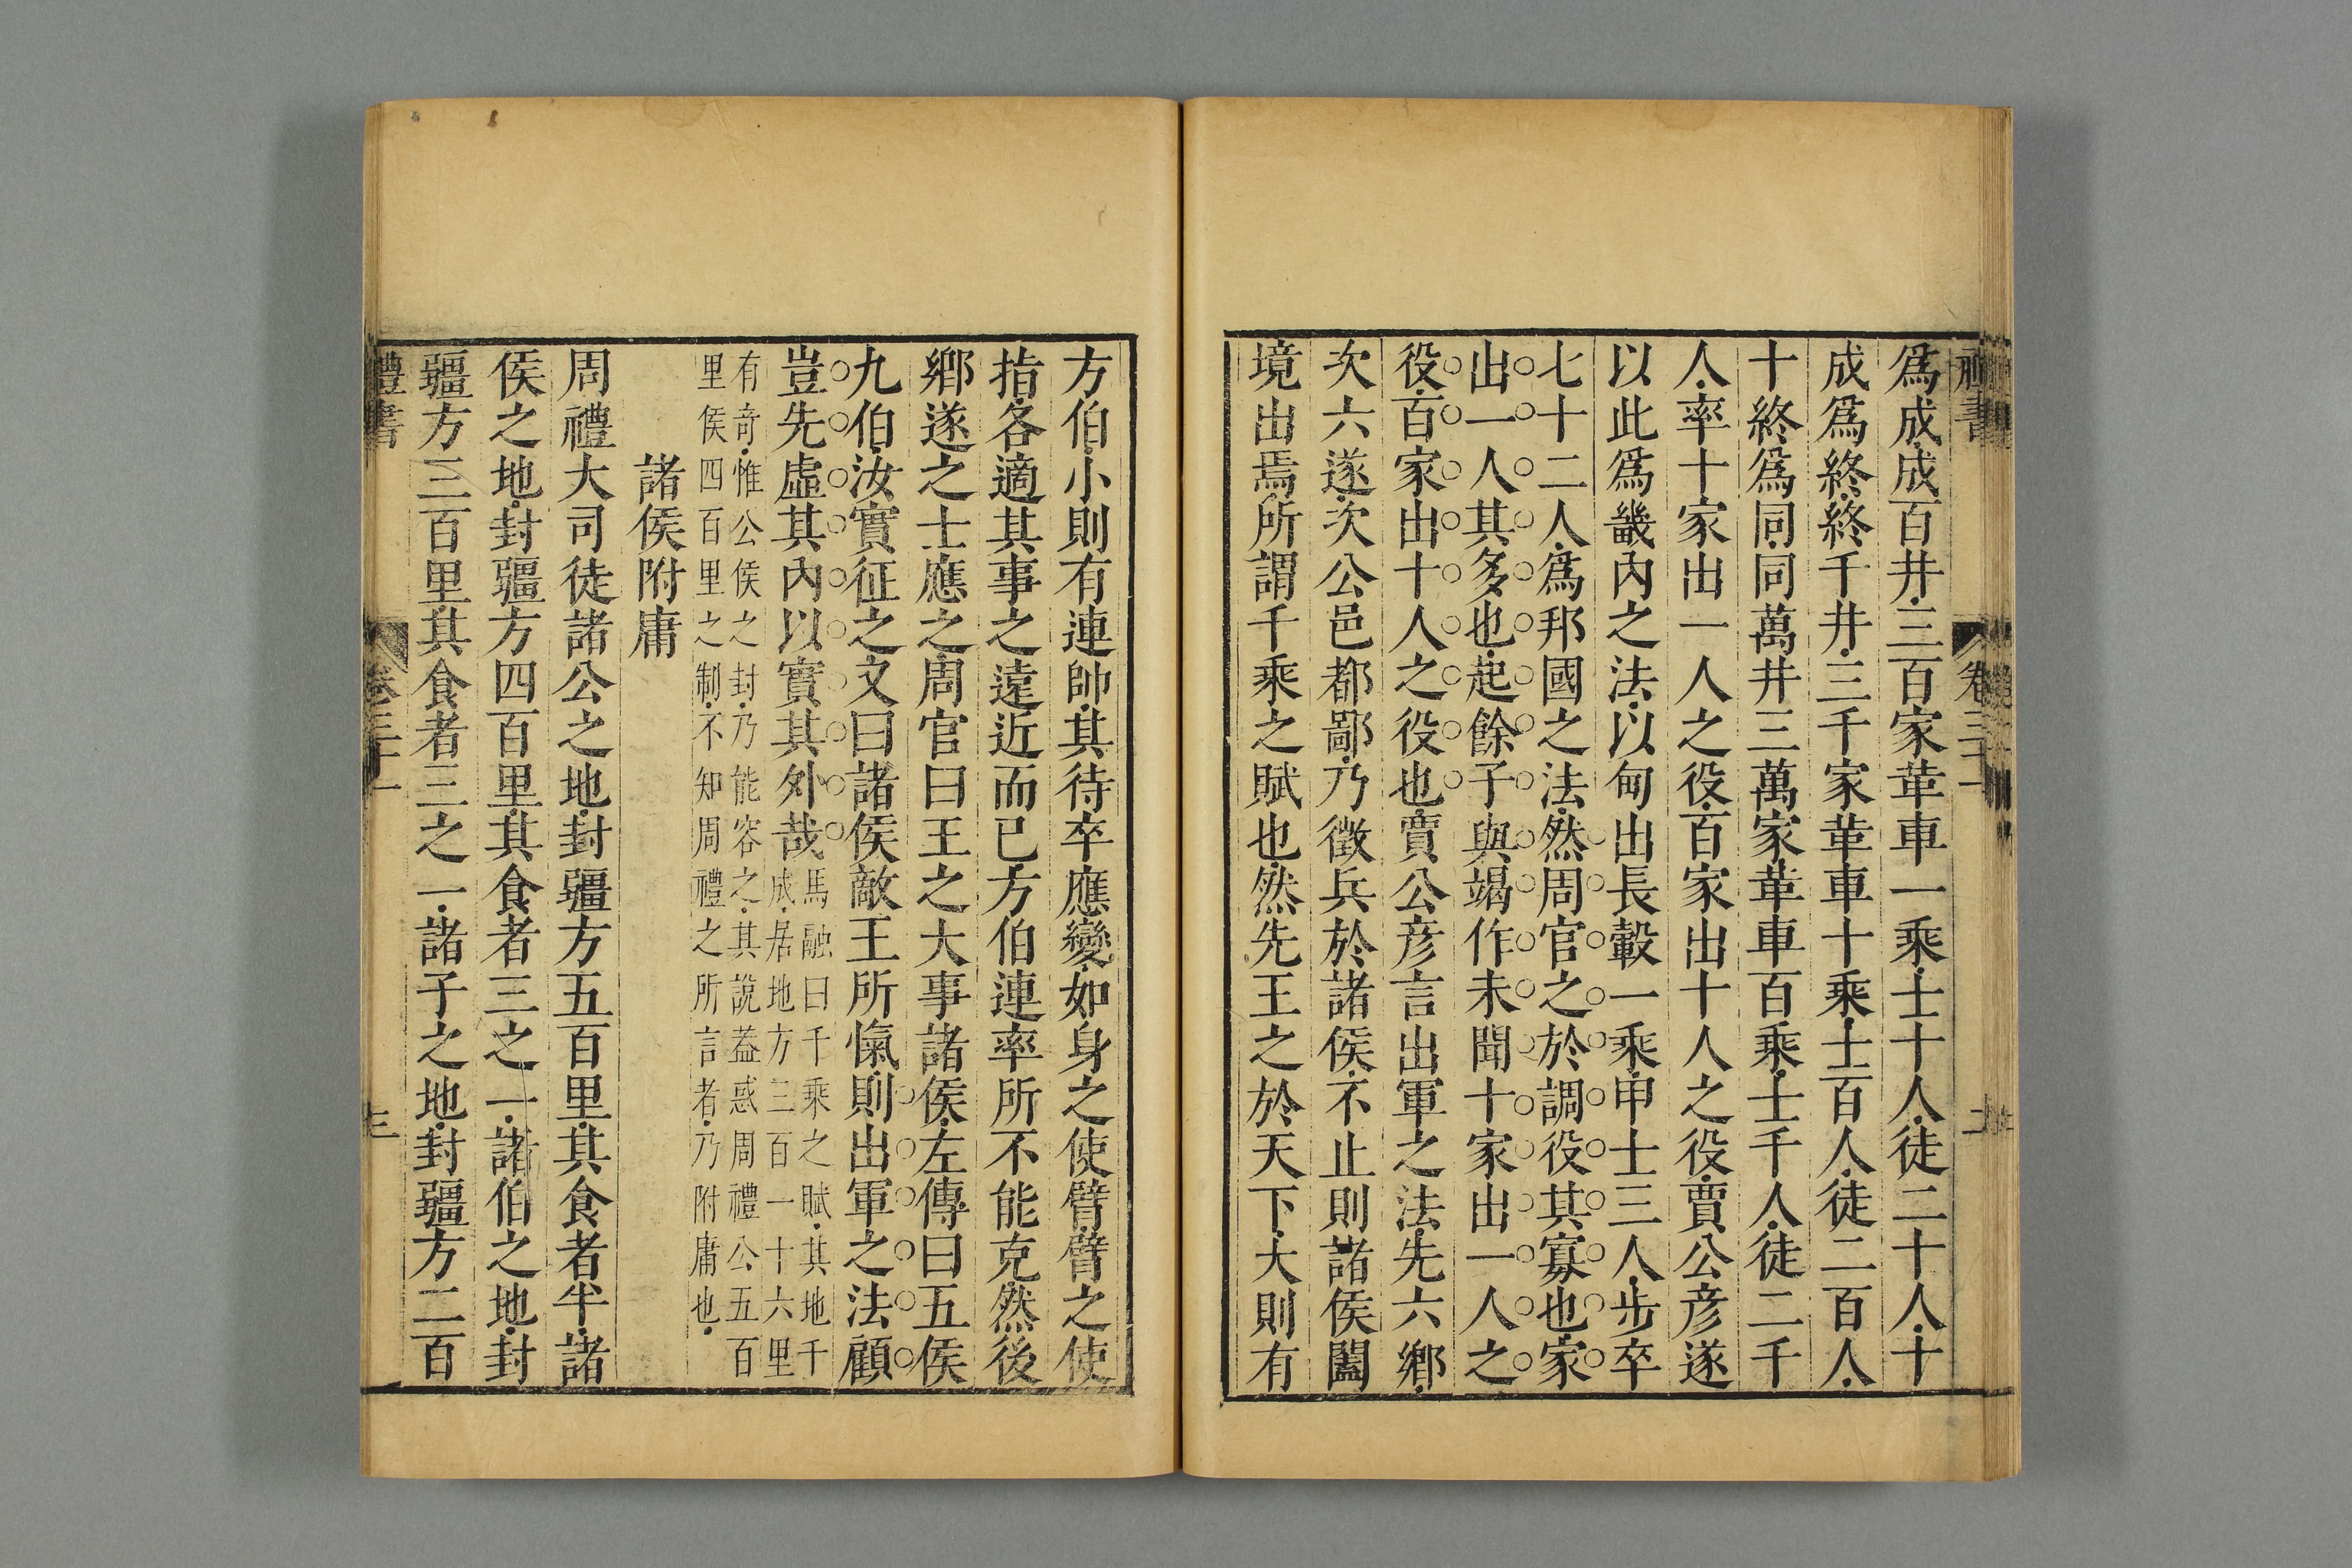 禮書 卷三十一 二
爲成成百井三百家革車一乘士十人徒二十人十
成爲終終千井三千家革車十乘士百人徒二百人
十終爲同同萬井三萬家革車百乘士千人徒二千
人率十家出一人之役百家出十人之役賈公彦遂
以此爲畿內之法以甸出長轂一乘甲士三人步卒
七十二人爲邦國之法然周官之於調役其寡也家
出一人其多也起餘子與竭作未聞十家出一人之
役百家出十人之役也賈公彦言出軍之法先六鄉
次六遂次公邑都鄙乃徵兵於諸侯不止則諸侯闔
境出焉所謂千乘之賦也然先王之於天下大則有
方伯小則有連帥其待卒應變如身之使臂臂之使
指各適其事之遠近而已方伯連率所不能克然後
鄉遂之士應之周官曰王之大事諸侯左傳曰五侯
九伯汝實征之文曰諸侯敵王所愾則出軍之法顧
豈先虛其內以實其外哉馬融曰千乘之賦其地千
成居地方三百一十六里
有奇惟公侯之封乃能容之其說蓋惑周禮公五百
里侯四百里之制不知周禮之所言者乃附庸也
諸侯附庸
周禮大司徒諸公之地封疆方五百里其食者半諸
侯之地封疆方四百里其食者三之一諸伯之地封
疆方三百里其食者三之一諸子之地封疆方二百
禮書 卷三十一 三